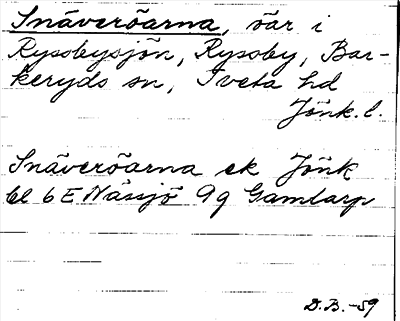 Snäveröarna, öar i
Rysbysjön, Rysby, Bar-
keryds sn, Tveta hd
Jönk. l.
Snäveröarna ek Jönk
bl 6 E Nässjö 9 g Gamlarp
D.B. -59